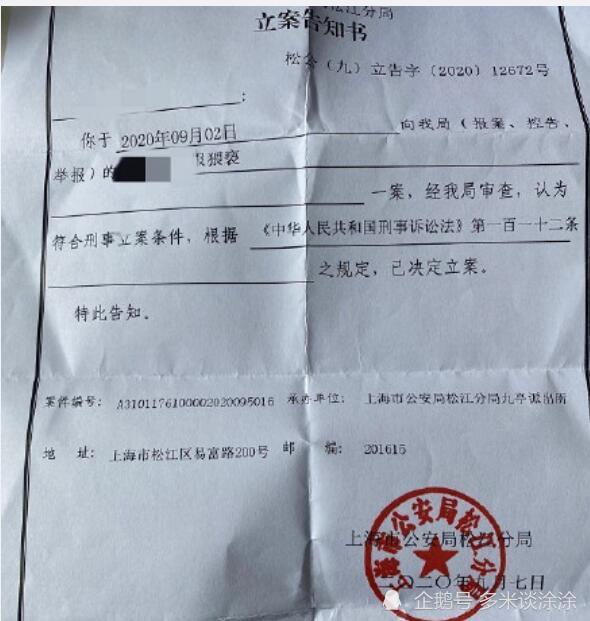 松江分局
立案告知书
松公（九）立告字〔2020〕12672号
：
你于 2020年09月02日 向我局（报案、控告、
举报）的 猥亵
一案，经我局审查，认为
符合刑事立案条件，根据 《中华人民共和国刑事诉讼法》第一百一十二条
之规定，已决定立案。
特此告知。
案件编号： A3101176100002020095016 承办单位： 上海市公安局松江分局九亭派出所
地 址： 上海市松江区易富路200号 邮 编： 201615
上海市公安局松江分局
二〇二〇年九月七日
上海市公安局松江分局
企鹅号 多米谈涂涂